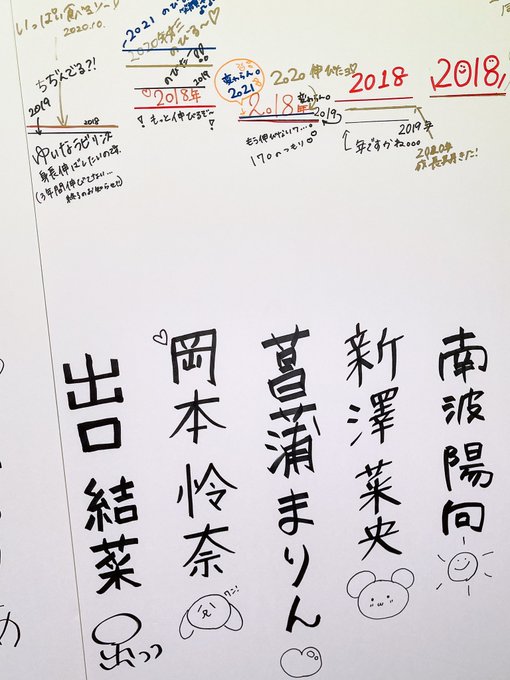 いっぱい食べるゾー
2020.10.
ちぢんでる?!
2019
2018
ゆいなラビリンス
身長伸ばしたいの球
(3年間伸びてない…
終了のお知らせ)
2021 のびた
2020年末
のびる〜♡
のびた!!
2019
2018年
もっと伸びるぞ〜
変わらん。
2021
2020 伸びたヨ♡
2018年
変わらん。
2019
もう伸びない?…
170のつもり
2018
2019年
年ですかね…
2020年
成長終了きた!
2018
南波陽向
新澤菜央
菖蒲まりん
岡本怜奈
ワン!
出口結菜
出っつ
め